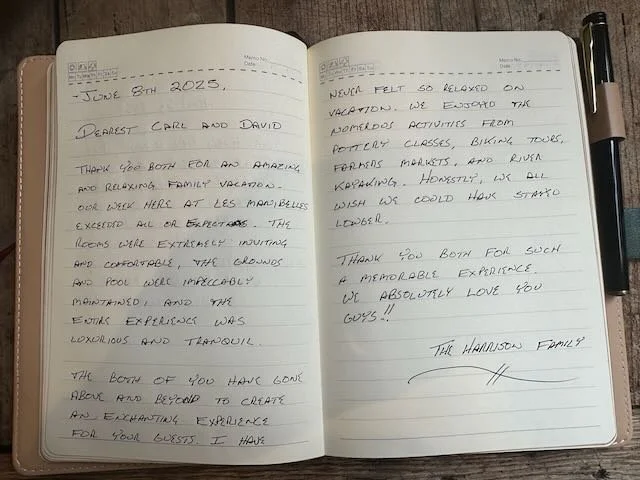 Memo No.
Date
-JUNE 8TH 2025,
DEAREST CARL AND DAVID
THANK YOU BOTH FOR AN AMAZING
AND RELAXING FAMILY VACATION.
OUR WEEK HERE AT LES MANIBELLES
EXCEEDED ALL OR THE
ROOMS WERE EXTREMELY INVITING
AND COMFORTABLE, THE GROUNDS
AND POOL WERE IMPECCABLY
MAINTAINED; AND THE
ENTIRE EXPERIENCE WAS
LUXURIOUS AND TRANQUIL.
THE BOTH OF YOU HAVE GONE
ABOVE AND BEYOND TO CREATE
AN ENCHANTING EXPERIENCE
FOR YOUR GUESTS. I HAVE
Memo No.
Date
NEVER FELT SO RELAXED ON
VACATION. WE ENJOYED THE
NUMEROUS ACTIVITIES FROM
POTTERY CLASSES, BIKING TOURS,
FARMERS MARKETS, AND RIVER
KAYAKING. HONESTLY, WE ALL
WISH WE COULD HAVE STAYED
LONGER.
THANK YOU BOTH FOR SUCH
A MEMORABLE EXPERIENCE.
WE ABSOLUTELY LOVE YOU
GUYS!!
THE HARRISON FAMILY